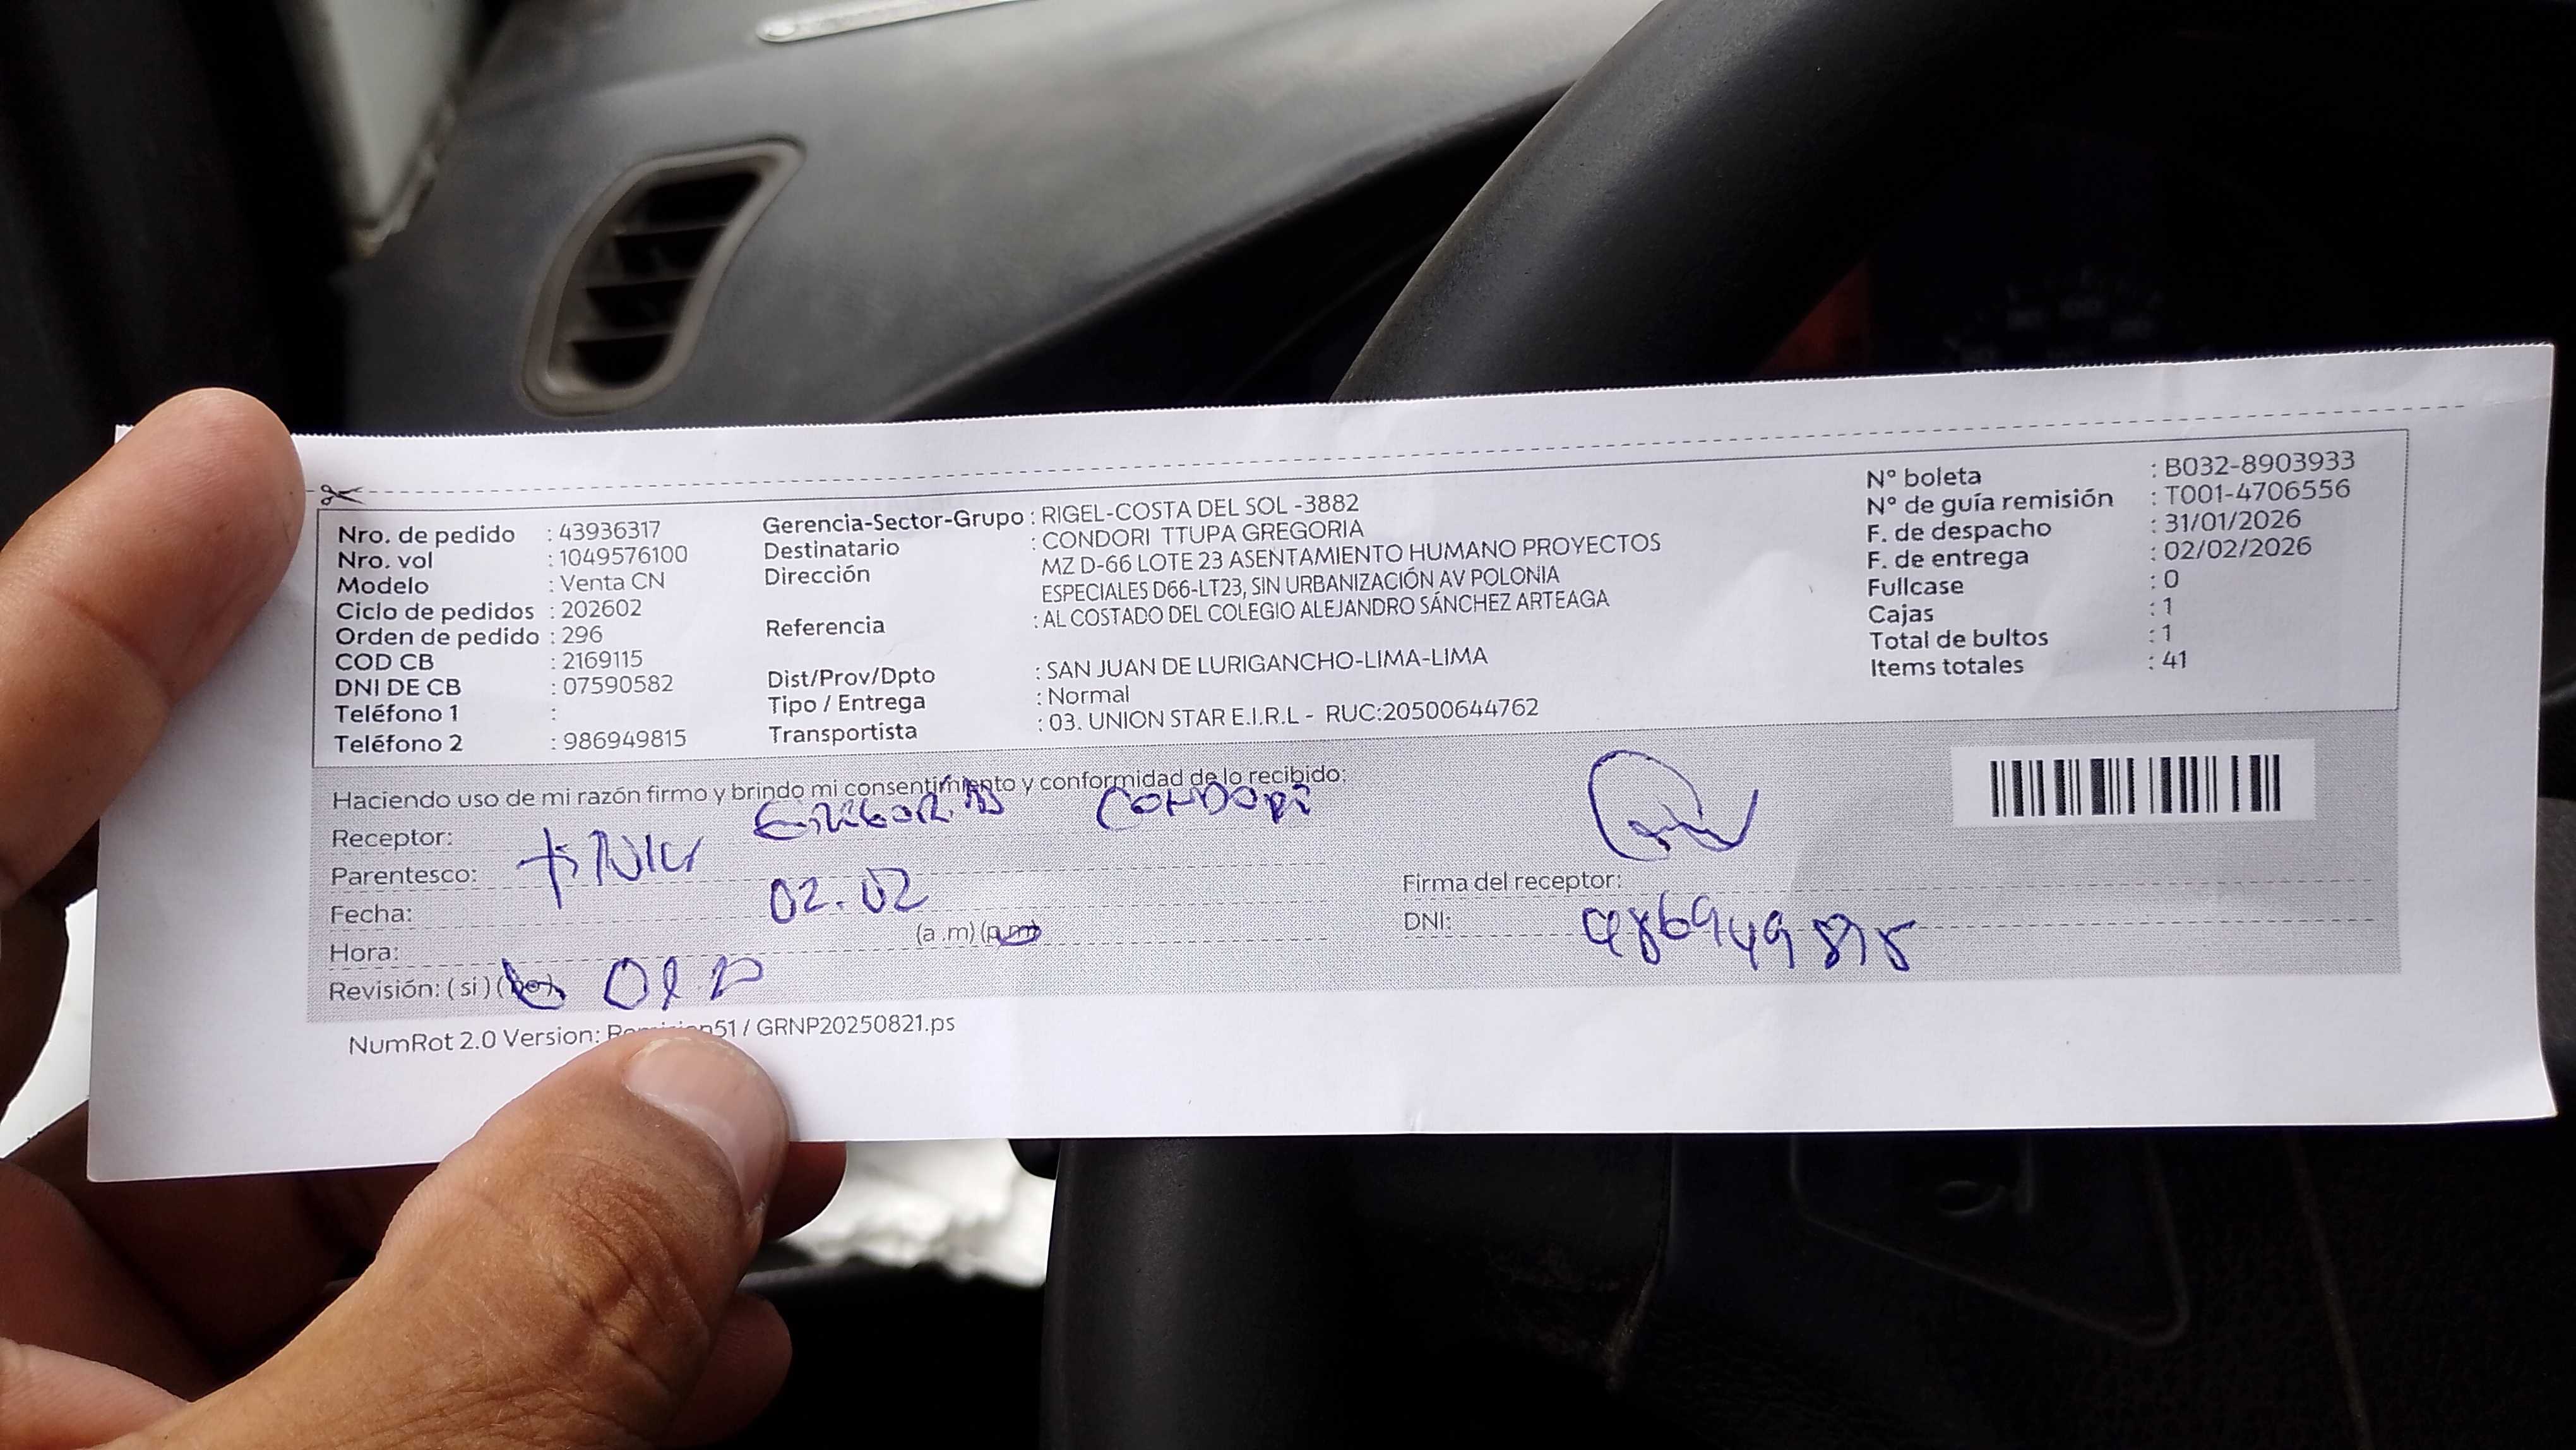 Nro. de pedido : 43936317
Nro. vol : 1049576100
Modelo : Venta CN
Ciclo de pedidos : 202602
Orden de pedido : 296
COD CB : 2169115
DNI DE CB : 07590582
Teléfono 1 :
Teléfono 2 : 986949815
Gerencia-Sector-Grupo : RIGEL-COSTA DEL SOL -3882
Destinatario : CONDORI TTUPA GREGORIA
Dirección MZ D-66 LOTE 23 ASENTAMIENTO HUMANO PROYECTOS
ESPECIALES D66-LT23, SIN URBANIZACIÓN AV POLONIA
Referencia : AL COSTADO DEL COLEGIO ALEJANDRO SÁNCHEZ ARTEAGA
Dist/Prov/Dpto : SAN JUAN DE LURIGANCHO-LIMA-LIMA
Tipo / Entrega : Normal
Transportista : 03. UNION STAR E.I.R.L - RUC:20500644762
N° boleta : B032-8903933
N° de guía remisión : T001-4706556
F. de despacho : 31/01/2026
F. de entrega : 02/02/2026
Fullcase : 0
Cajas : 1
Total de bultos : 1
Items totales : 41
Haciendo uso de mi razón firmo y brindo mi consentimiento y conformidad de lo recibido:
Receptor: CONDORi
Parentesco:
Fecha: 02.02
Hora: (a .m) (p.m)
Revisión: ( si ) (
Firma del receptor:
DNI: 986949815
NumRot 2.0 Version: 51 / GRNP20250821.ps